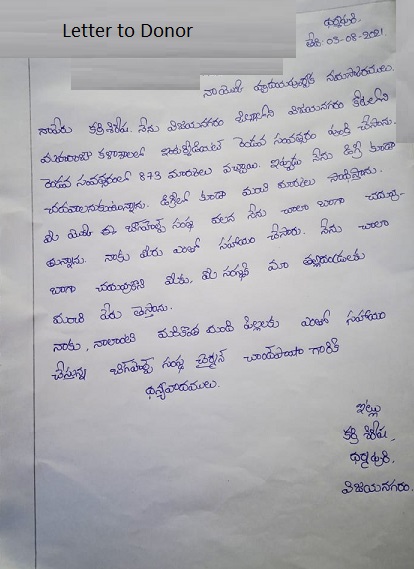 Letter to Donor
ధర్మపురి,
తేది: 03-08-2021.
నా యొక్క హృదయపూర్వక నమస్కారములు.
నాపేరు కర్రి శిరీష. నేను విజయనగరం జిల్లాలోని విజయనగరం కోటలోని
మహారాజా కళాశాలలో ఇంటర్మీడియట్ రెండవ సంవత్సరం పూర్తి చేసాను.
రెండవ సంవత్సరంలో 873 మార్కులు వచ్చాయి. ఇప్పుడు నేను డిగ్రీ కూడా
చదవాలనుకుంటున్నాను. డిగ్రీలో కూడా మంచి మార్కులు సాధిస్తాను.
మీ యొక్క ఈ బిగ్‌హెల్ప్ సంస్థ వలన నేను చాలా బాగా చదువు-
తున్నాను. నాకు మీరు ఎంతో సహాయం చేసారు. నేను చాలా
బాగా చదువుకొని మీకు, మీ సంస్థకి మా తల్లిదండ్రులకు
మంచి పేరు తెస్తాను.
నాకు, నాలాంటి మరికొంత మంది పిల్లలకు ఎంతో సహాయం
చేస్తున్న బిగ్‌హెల్ప్ సంస్థ చైర్మన్ చాంద్‌పాషా గారికి
ధన్యవాదములు.
ఇట్లు
కర్రి శిరీష,
ధర్మపురి,
విజయనగరం.